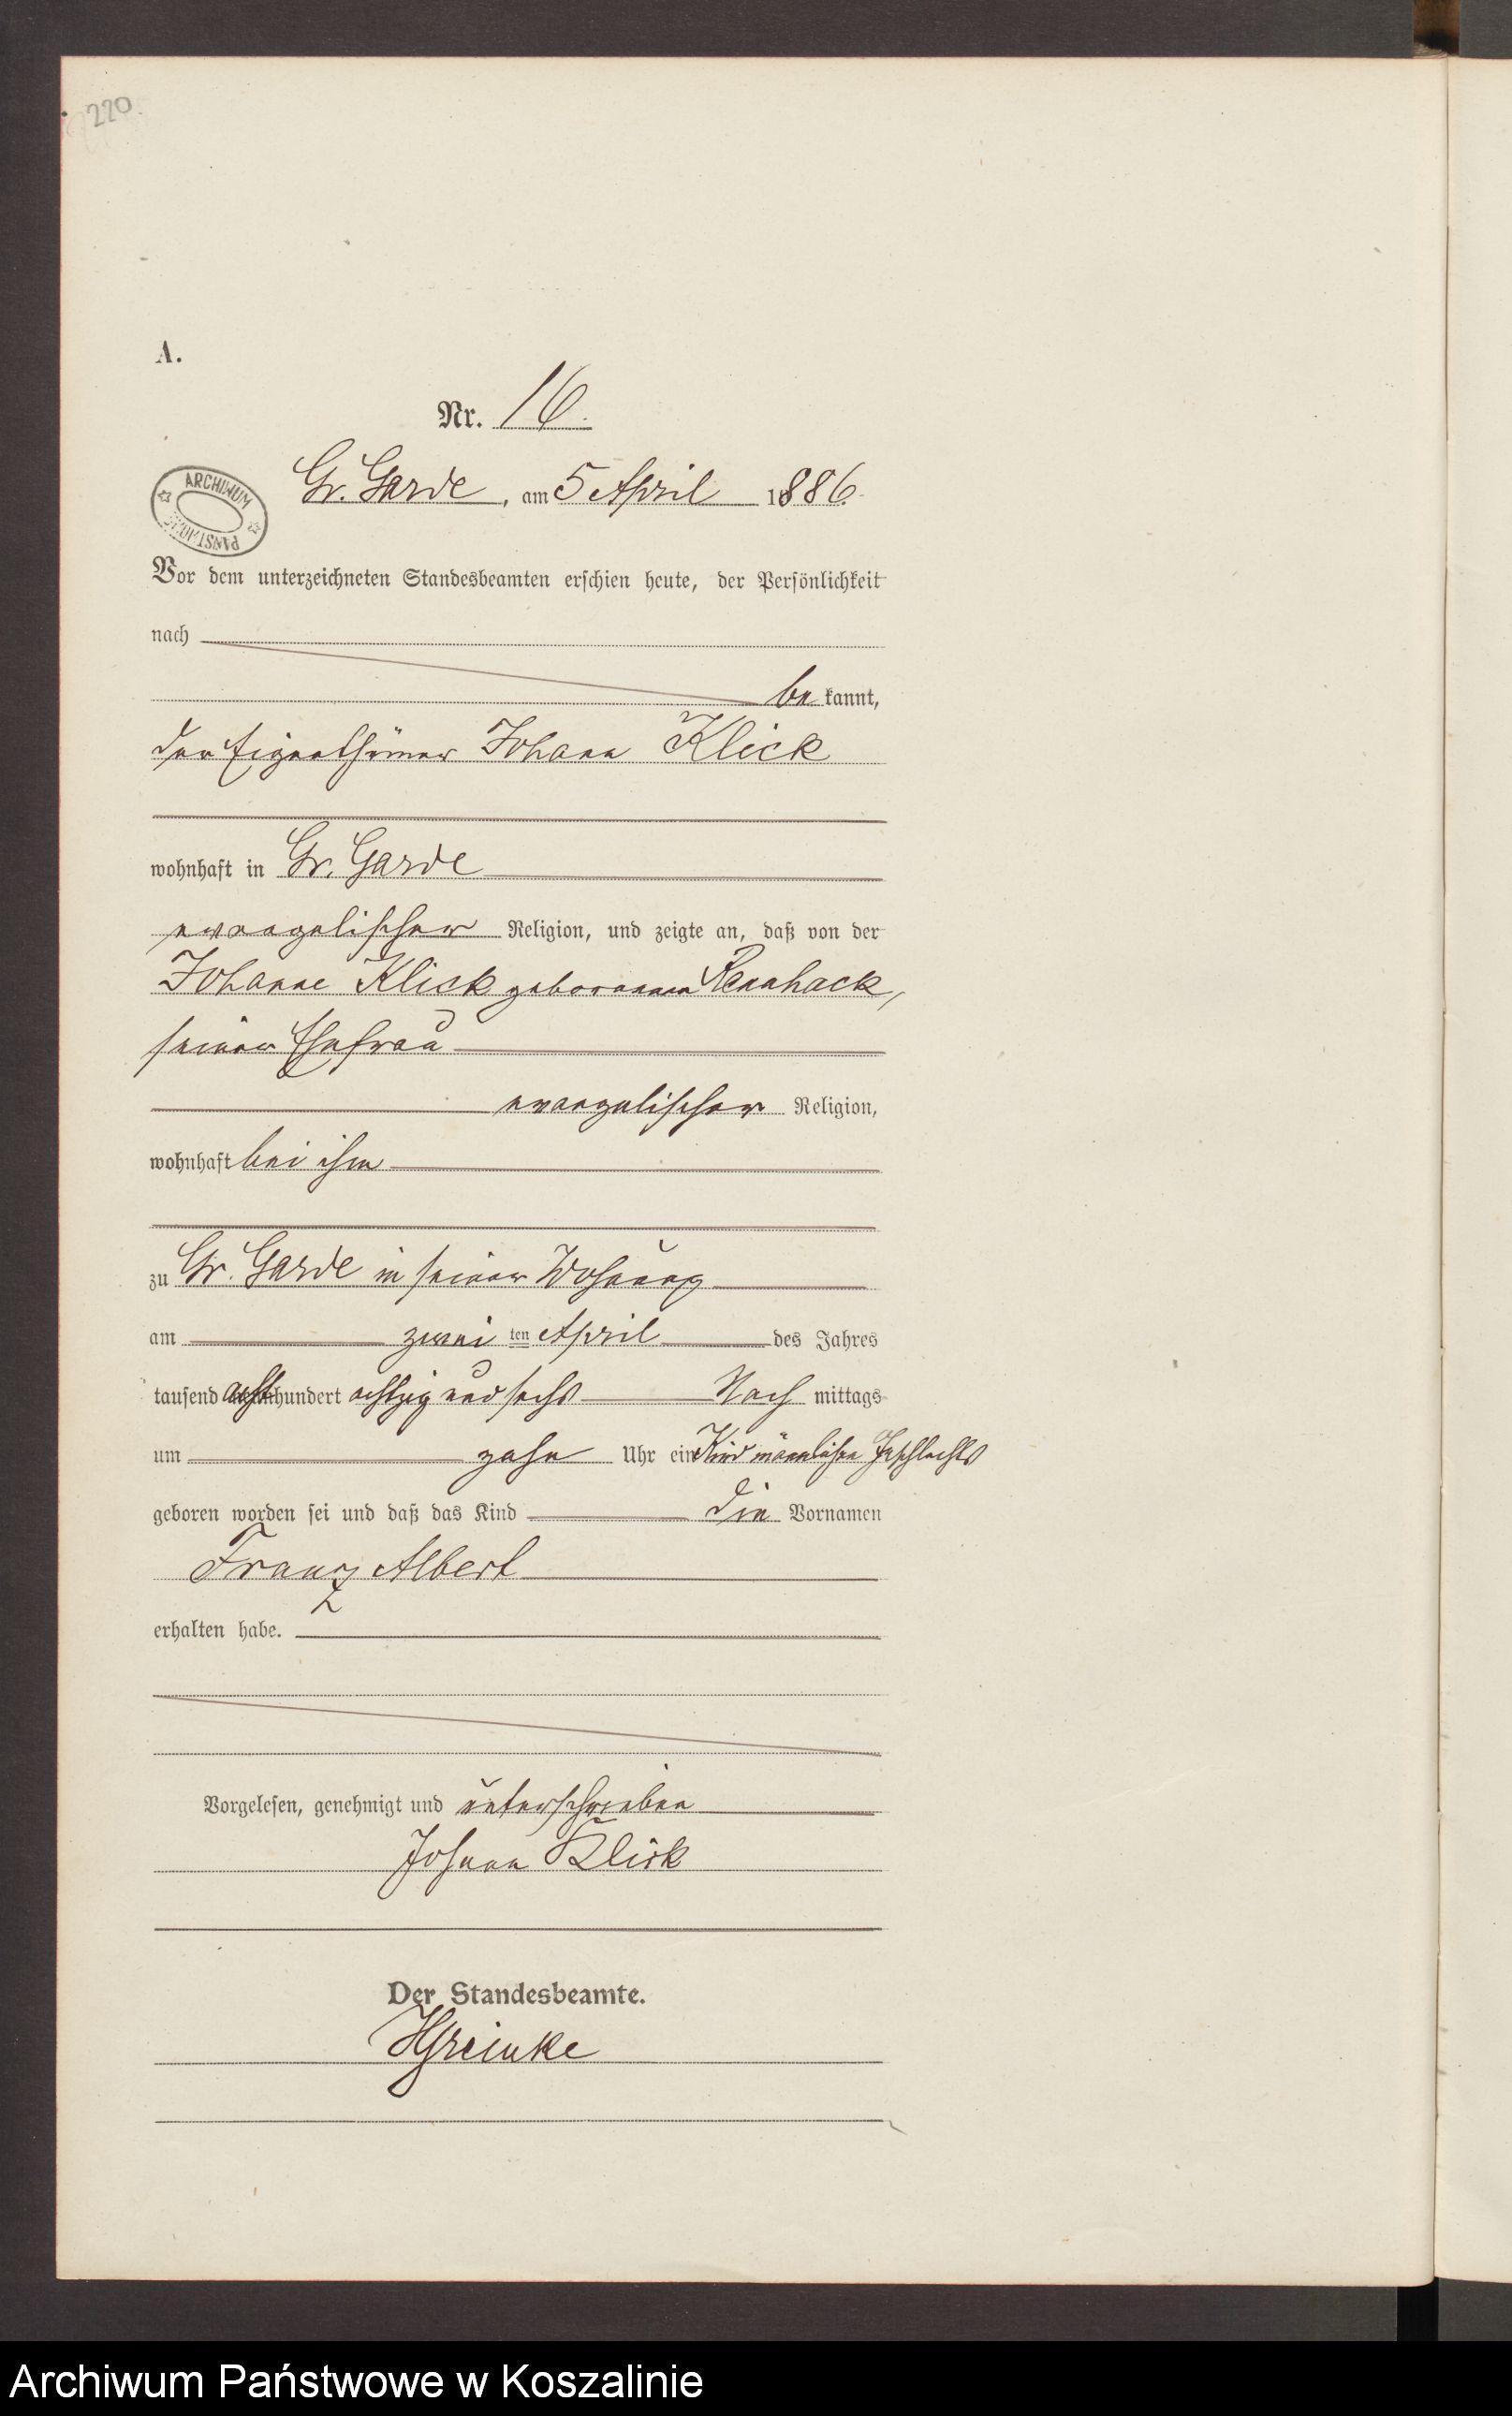 220.
A.
Nr. 16.
ARCHIWUM PAŃSTWOWE
Gr. Garde, am 5 April 1886.
Vor dem unterzeichneten Standesbeamten erschien heute, der Persönlichkeit
nach
be kannt,
der Eigenthümer Johann Klick
wohnhaft in Gr. Garde
evangelischer Religion, und zeigte an, daß von der
Johanne Klick geborenen Rennhack,
seiner Ehefrau
evangelischer Religion,
wohnhaft bei ihm
zu Gr. Garde in seiner Wohnung
am zwei ten April des Jahres
tausend acht hundert achtzig und sechs Nach mittags
um zehn Uhr ein Kind männlichen Geschlechts
geboren worden sei und daß das Kind die Vornamen
Franz Albert
erhalten habe.
Vorgelesen, genehmigt und unterschrieben
Johann Klick
Der Standesbeamte.
HGreinke
Archiwum Państwowe w Koszalinie